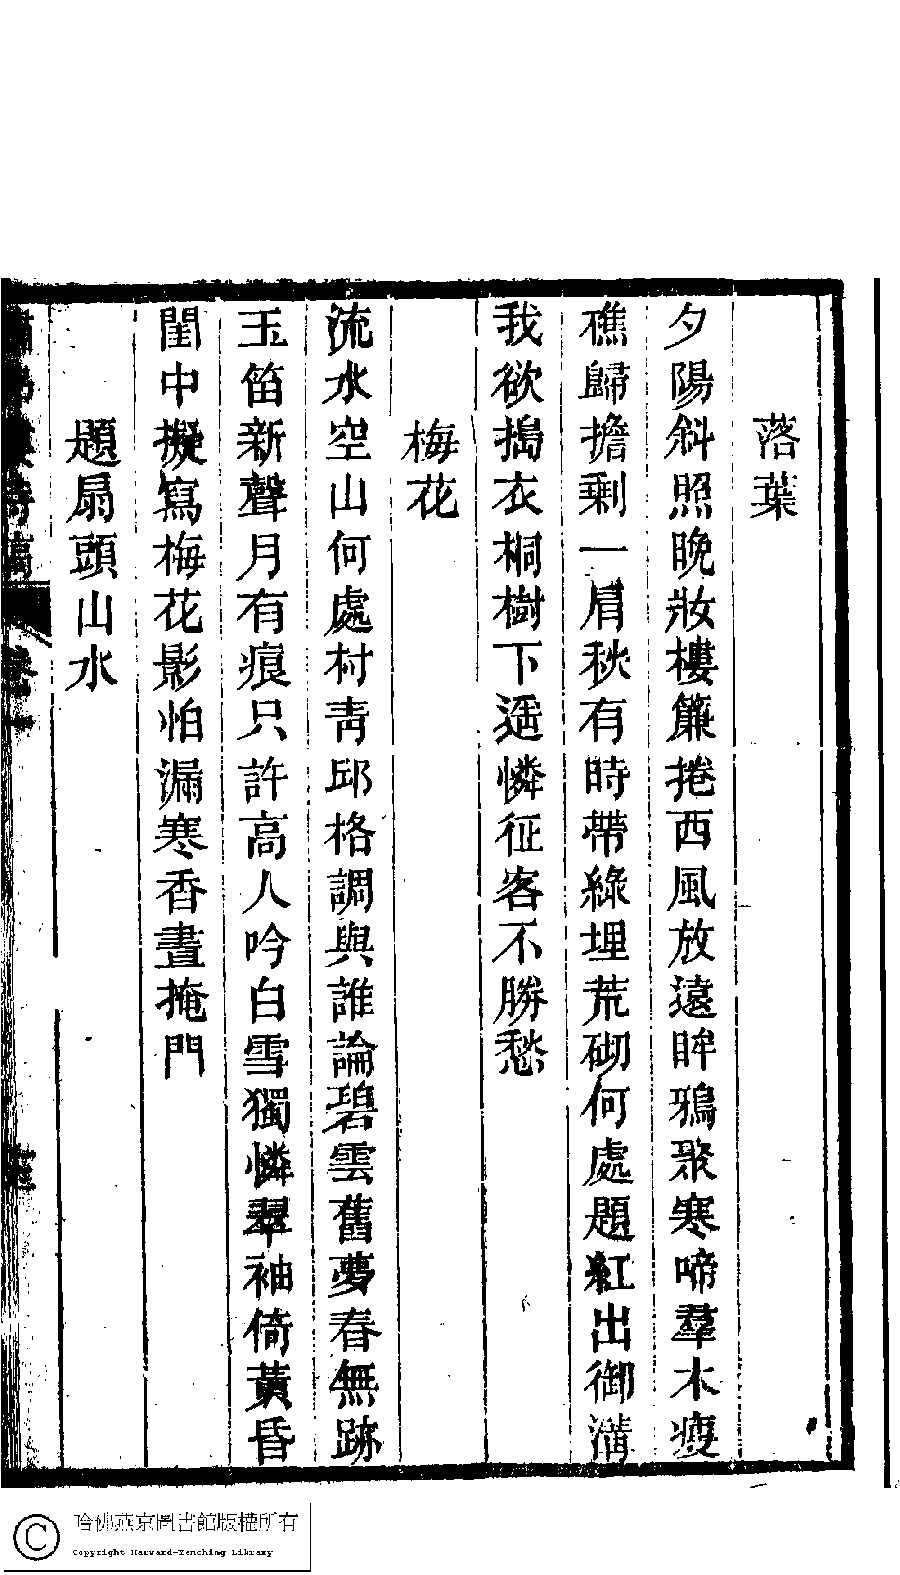 落葉
夕陽斜照晚妝樓簾捲西風放遠眸鴉聚寒啼羣木瘦
樵歸擔剩一肩秋有時帶綠埋荒砌何處題紅出御溝
我欲搗衣桐樹下遥憐征客不勝愁
梅花
流水空山何處村靑邱格調與誰論碧雲舊夢春無跡
玉笛新聲月有痕只許高人吟白雪獨憐翠袖倚黃昏
閨中擬寫梅花影怕漏寒香晝掩門
題扇頭山水
詩稿
哈佛燕京圖書館版權所有
Copyright Harvard-Yenching Library